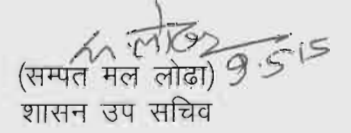 म. लोढ़ा 9.5.15
(सम्पत मल लोढ़ा)
शासन उप सचिव